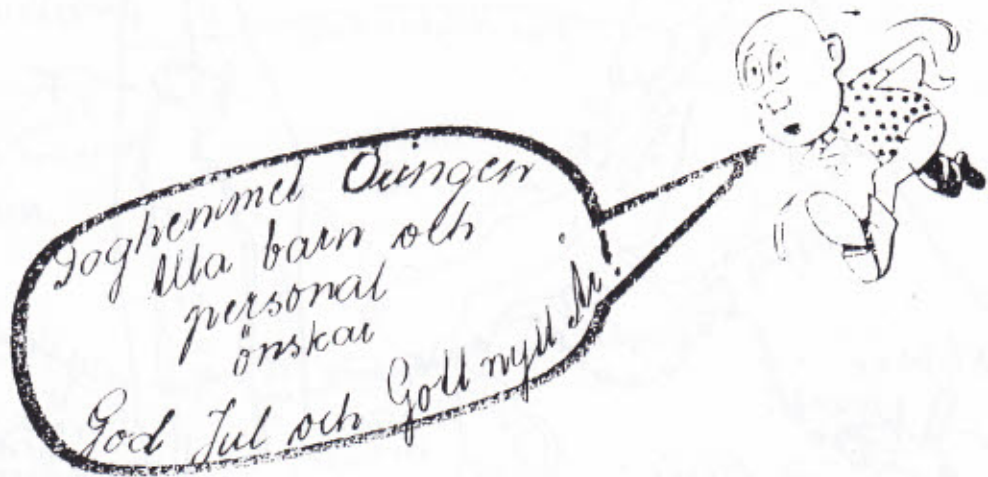 Daghemmet Öringen
Alla barn och
personal
önskar
God Jul och Gott nytt År!